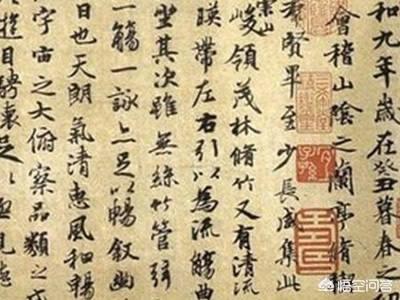 和九年歲在癸丑暮春之
會稽山陰之蘭亭脩禊
群賢畢至少長咸集此
崇山
峻領茂林脩竹又有清流
暎帶左右引以為流觴曲
坐其次雖無絲竹管弦
一觴一詠亦足以暢敘幽
日也天朗氣清惠風和暢
宇宙之大俯察品類之盛
遊目騁懷足
悟空问答